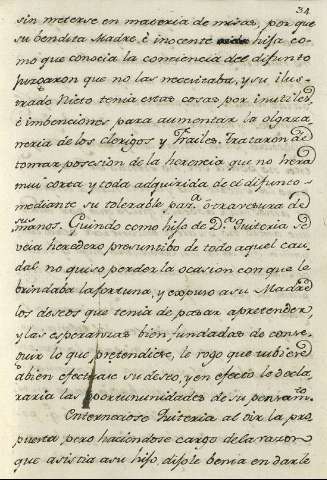 34
sin meterse en materia de misas, por que
su bendita Madre, è inocente hija co-
mo que conocia la conciencia del difunto
juzgaron que no las necesitaba, y su ilus-
trado Nieto tenia estas cosas por inutiles,
è imbenciones para aumentar la olgaza-
neria de los clerigos y Frailes. Trataron de
tomar posesion de la herencia que no hera
mui corta y toda adquirida de el difunto
mediante su tolerable par.ª ò travesura de
sus manos. Guindo como hijo de D.ª Quiteria se
veia heredero presuntibo de todo aquel cau-
dal no quiso perder la ocasion con que le
brindaba la fortuna, y expuso a su Madre
los deseos que tenia de pasar a pretender,
y las esperanzas bien fundadas de conse-
guir lo que pretendiese, le rogo que tubiere
à bien efectuase su deseo, y en efecto le decla-
raria las oportunidades de su pensam.to
Enterneciose Quiteria al oir la pro-
puesta pero haciendose cargo de la razon
que asistia a su hijo, dijole benia en darle